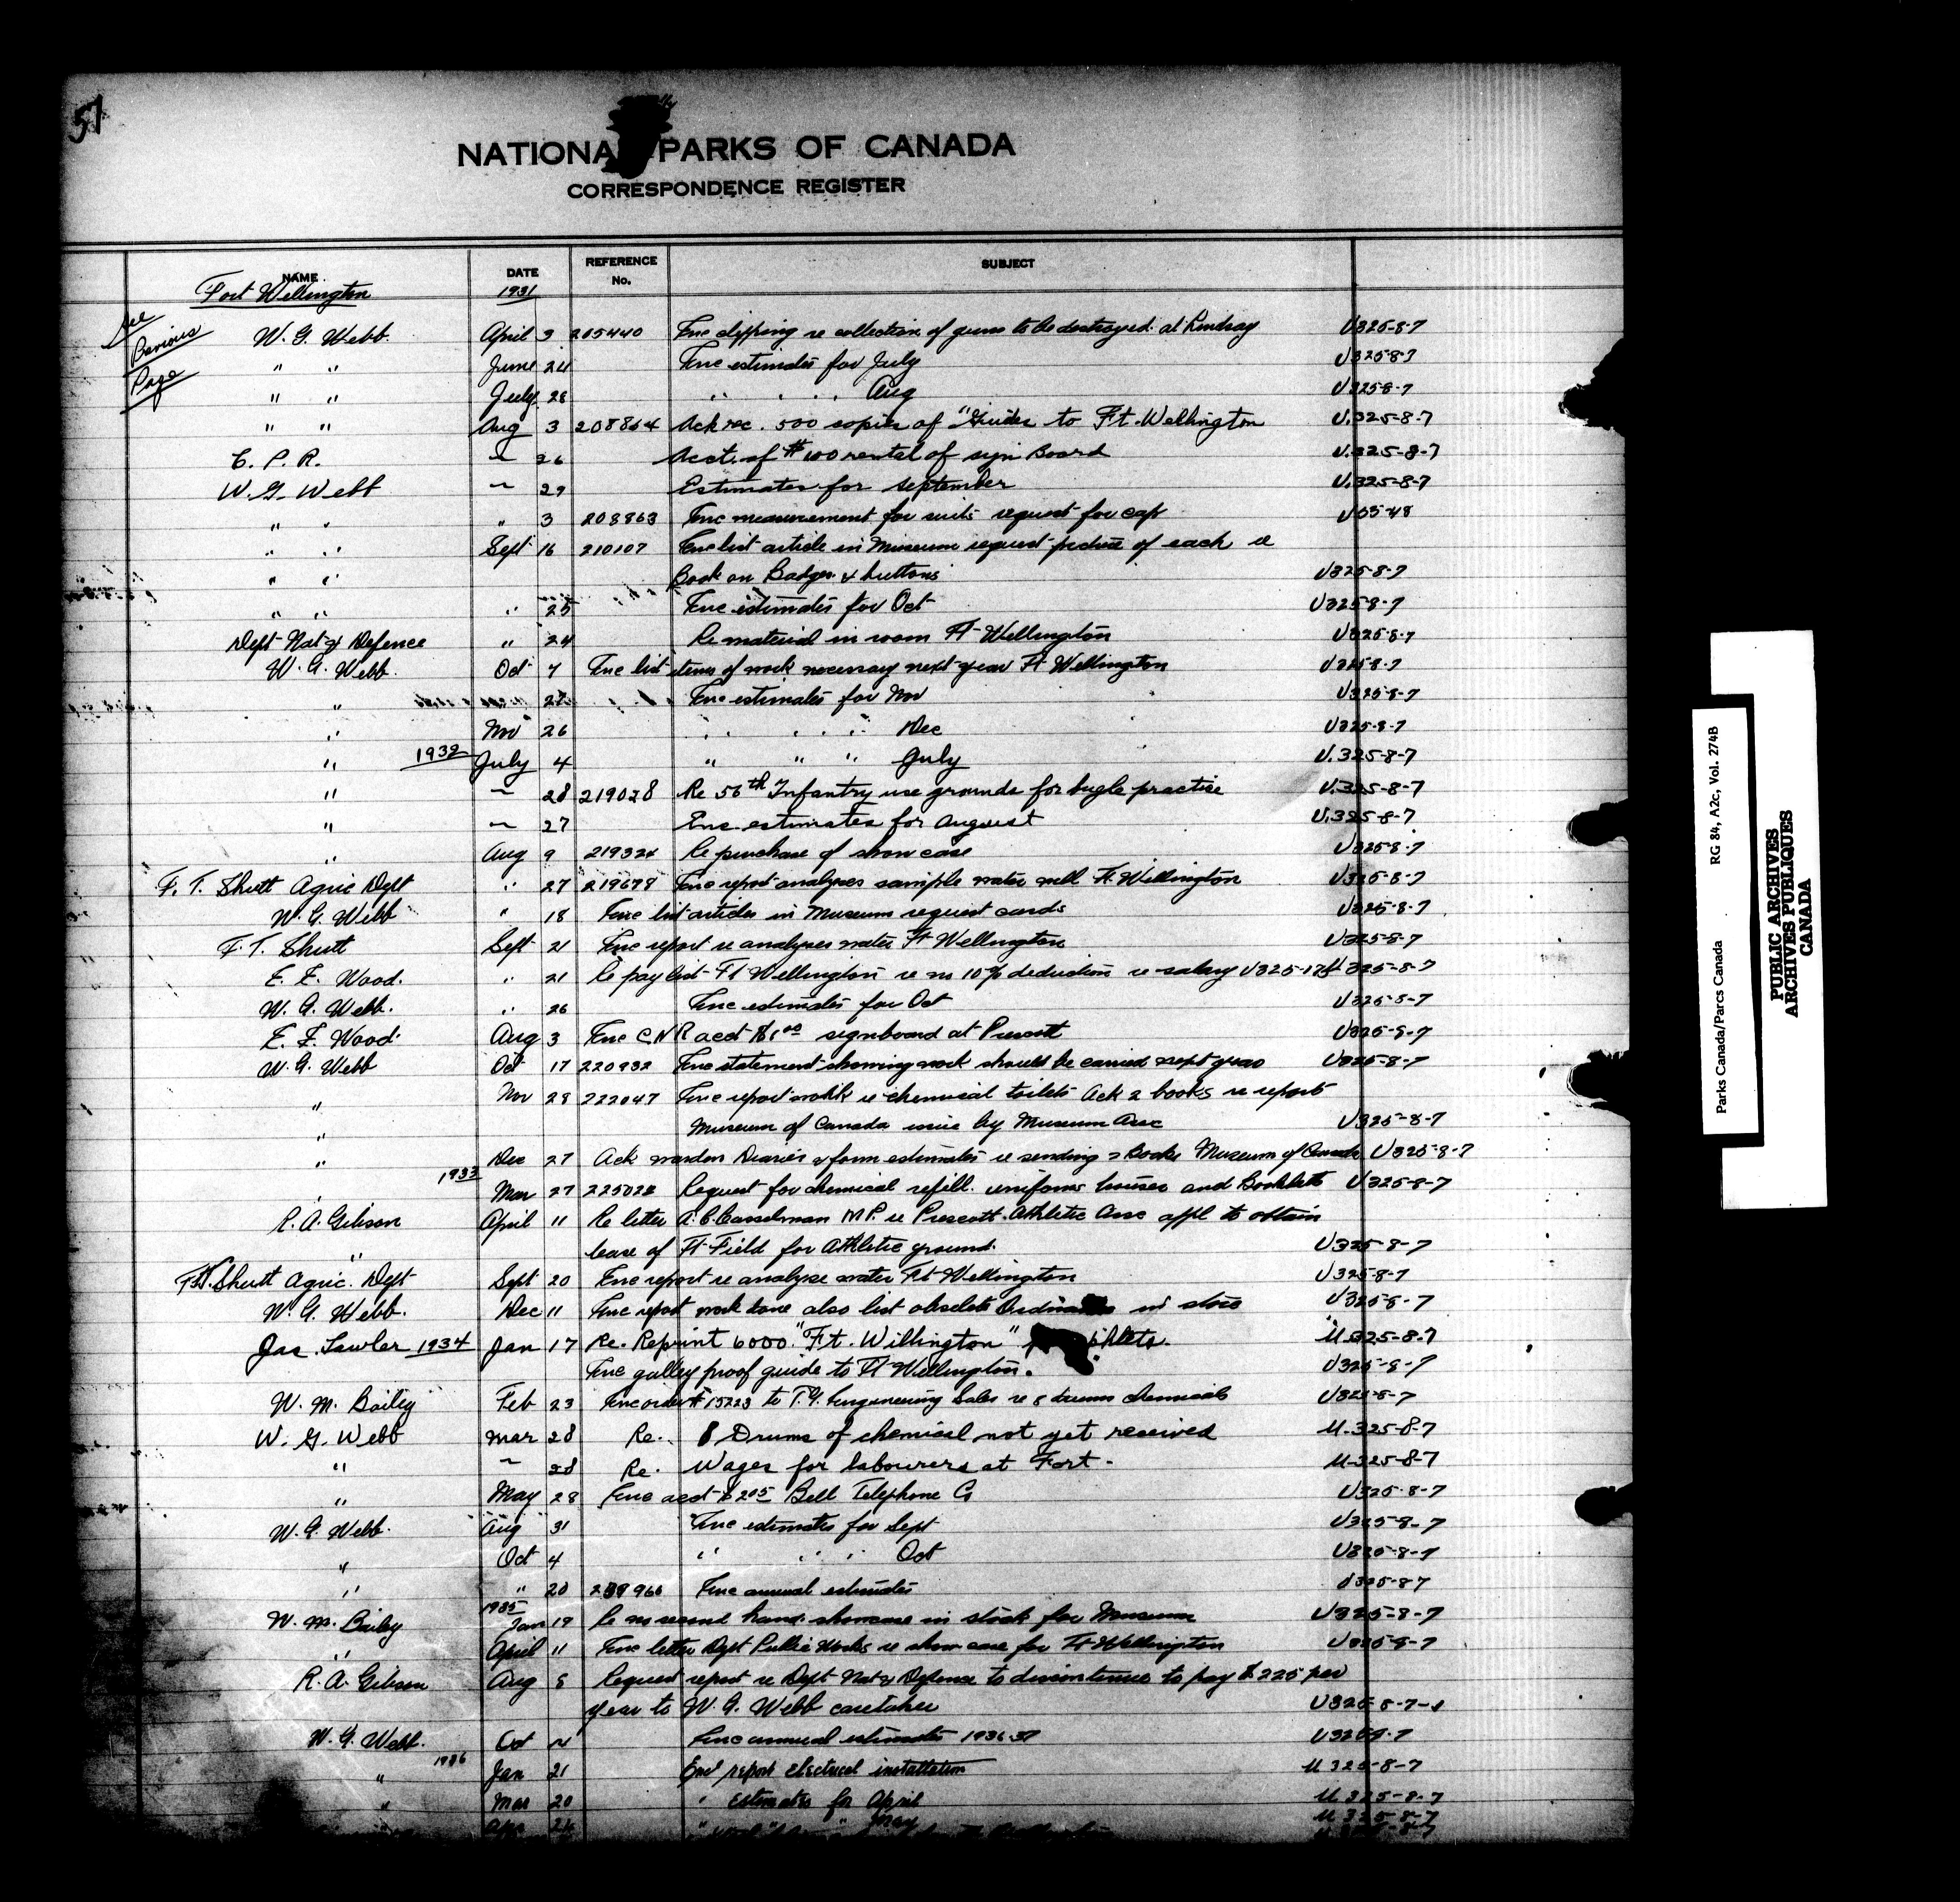 51
NATIONA PARKS OF CANADA
CORRESPONDENCE REGISTER
NAME DATE REFERENCE No. SUBJECT
Fort Wellington 1931
See Previous Page
W. G. Webb. April 3 205440 Enc clipping re collection of guns to be destroyed at Lindsay U325-8-7
" " June 24 Enc estimates for July U325-8-7
" " July 28 " " " Aug U325-8-7
" " Aug 3 208864 Ack rec. 500 copies of "Guides to Ft. Wellington U.325-8-7
C. P. R. ~ 26 Acct. of $1.00 rental of sign Board U.325-8-7
W. G. Webb ~ 29 Estimates for September U.325-8-7
" " " 3 208863 Enc measurement for suits request for cap U35-48
" " Sept 16 210107 Enc list article in Museum request picture of each re
" " Book on Badges & buttons U325-8-7
" " " 25 Enc estimates for Oct U325-8-7
Dept Nat'l Defence " 24 Re material in room Ft Wellington U325-8-7
W. G. Webb. Oct 7 Enc list items of work necessary next year Ft Wellington U325-8-7
" 27 Enc estimates for Nov U325-8-7
" Nov 26 " " " Dec U325-8-7
" 1932 July 4 " " " July U.325-8-7
" ~ 28 219028 Re 56th Infantry use grounds for bugle practise U.325-8-7
" ~ 27 Enc. estimates for August U.325-8-7
" Aug 9 219324 Re purchase of show case U325-8-7
F. T. Shutt Agric Dept " 27 219679 Enc report analyses sample water well Ft. Wellington U325-8-7
W. G. Webb " 18 Enc list articles in Museum request cards U325-8-7
F. T. Shutt Sept 21 Enc report re analyses water Ft Wellington U325-8-7
E. E. Wood. " 21 Re pay list Ft Wellington re no 10% deduction re salary U325-174 325-8-7
W. G. Webb. " 26 Enc estimates for Oct U325-8-7
E. E. Wood. Aug 3 Enc C.N.R acct $1.00 signboard at Prescott U325-8-7
W. G. Webb Oct 17 220932 Enc statement showing work should be carried next year U325-8-7
" Nov 28 222047 Enc report work re chemical toilets Ack 2 books re report
" Museum of Canada issue by Museum Assc U325-8-7
" Dec 27 Ack warden Diaries & form estimates re sending 2 Books Museum of Canada U325-8-7
" 1933 Mar 27 225028 Request for chemical refill. uniforms and Booklets U325-8-7
R. A. Gibson April 11 Re letter A. C. Casselman M.P. re Prescott Athletic Assc appl to obtain
" lease of Ft Field for Athletic ground. U325-8-7
F.T. Shutt Agric. Dept Sept 20 Enc report re analyse water Ft Wellington U325-8-7
W. G. Webb. Dec 11 Enc report work done also list obsolete in store U325-8-7
Jas. Lawler 1934 Jan 17 Re. Reprint 6000 "Ft. Wellington" phlets. U.325-8-7
Enc galley proof guide to Ft Wellington. U325-8-7
W. M. Bailey Feb 23 Enc order # 15223 to T. G. Engineering Sales re 8 drums chemicals U325-8-7
W. G. Webb Mar 28 Re. 8 Drums of chemical not yet received U.325-8-7
" ~ 28 Re. Wages for labourers at Fort. U.325-8-7
" May 28 Enc acct $2.05 Bell Telephone Co U325-8-7
W. G. Webb. Aug 31 Enc estimates for Sept U325-8-7
" Oct 4 " " " Oct U325-8-7
" " 20 239966 Enc annual estimates U325-8-7
W. M. Bailey 1935 Jan 19 Re no second hand showcase in stock for Museum U325-8-7
" April 11 Enc letter Dept Public Works re show case for Ft Wellington U325-8-7
R. A. Gibson Aug 5 Request report re Dept Nat'l Defense to discontinue to pay $225 per
year to W. G. Webb caretaker U325-8-7-1
W. G. Webb. Oct 4 Enc annual estimates 1936-37 U325-8-7
" 1936 Jan 21 Encl report electrical installation U 325-8-7
" Mar 20 " Estimates for April U 325-8-7
" Apr 24 " " " May U 325-8-7
Parks Canada/Parcs Canada RG 84, A2c, Vol. 274B
PUBLIC ARCHIVES
ARCHIVES PUBLIQUES
CANADA